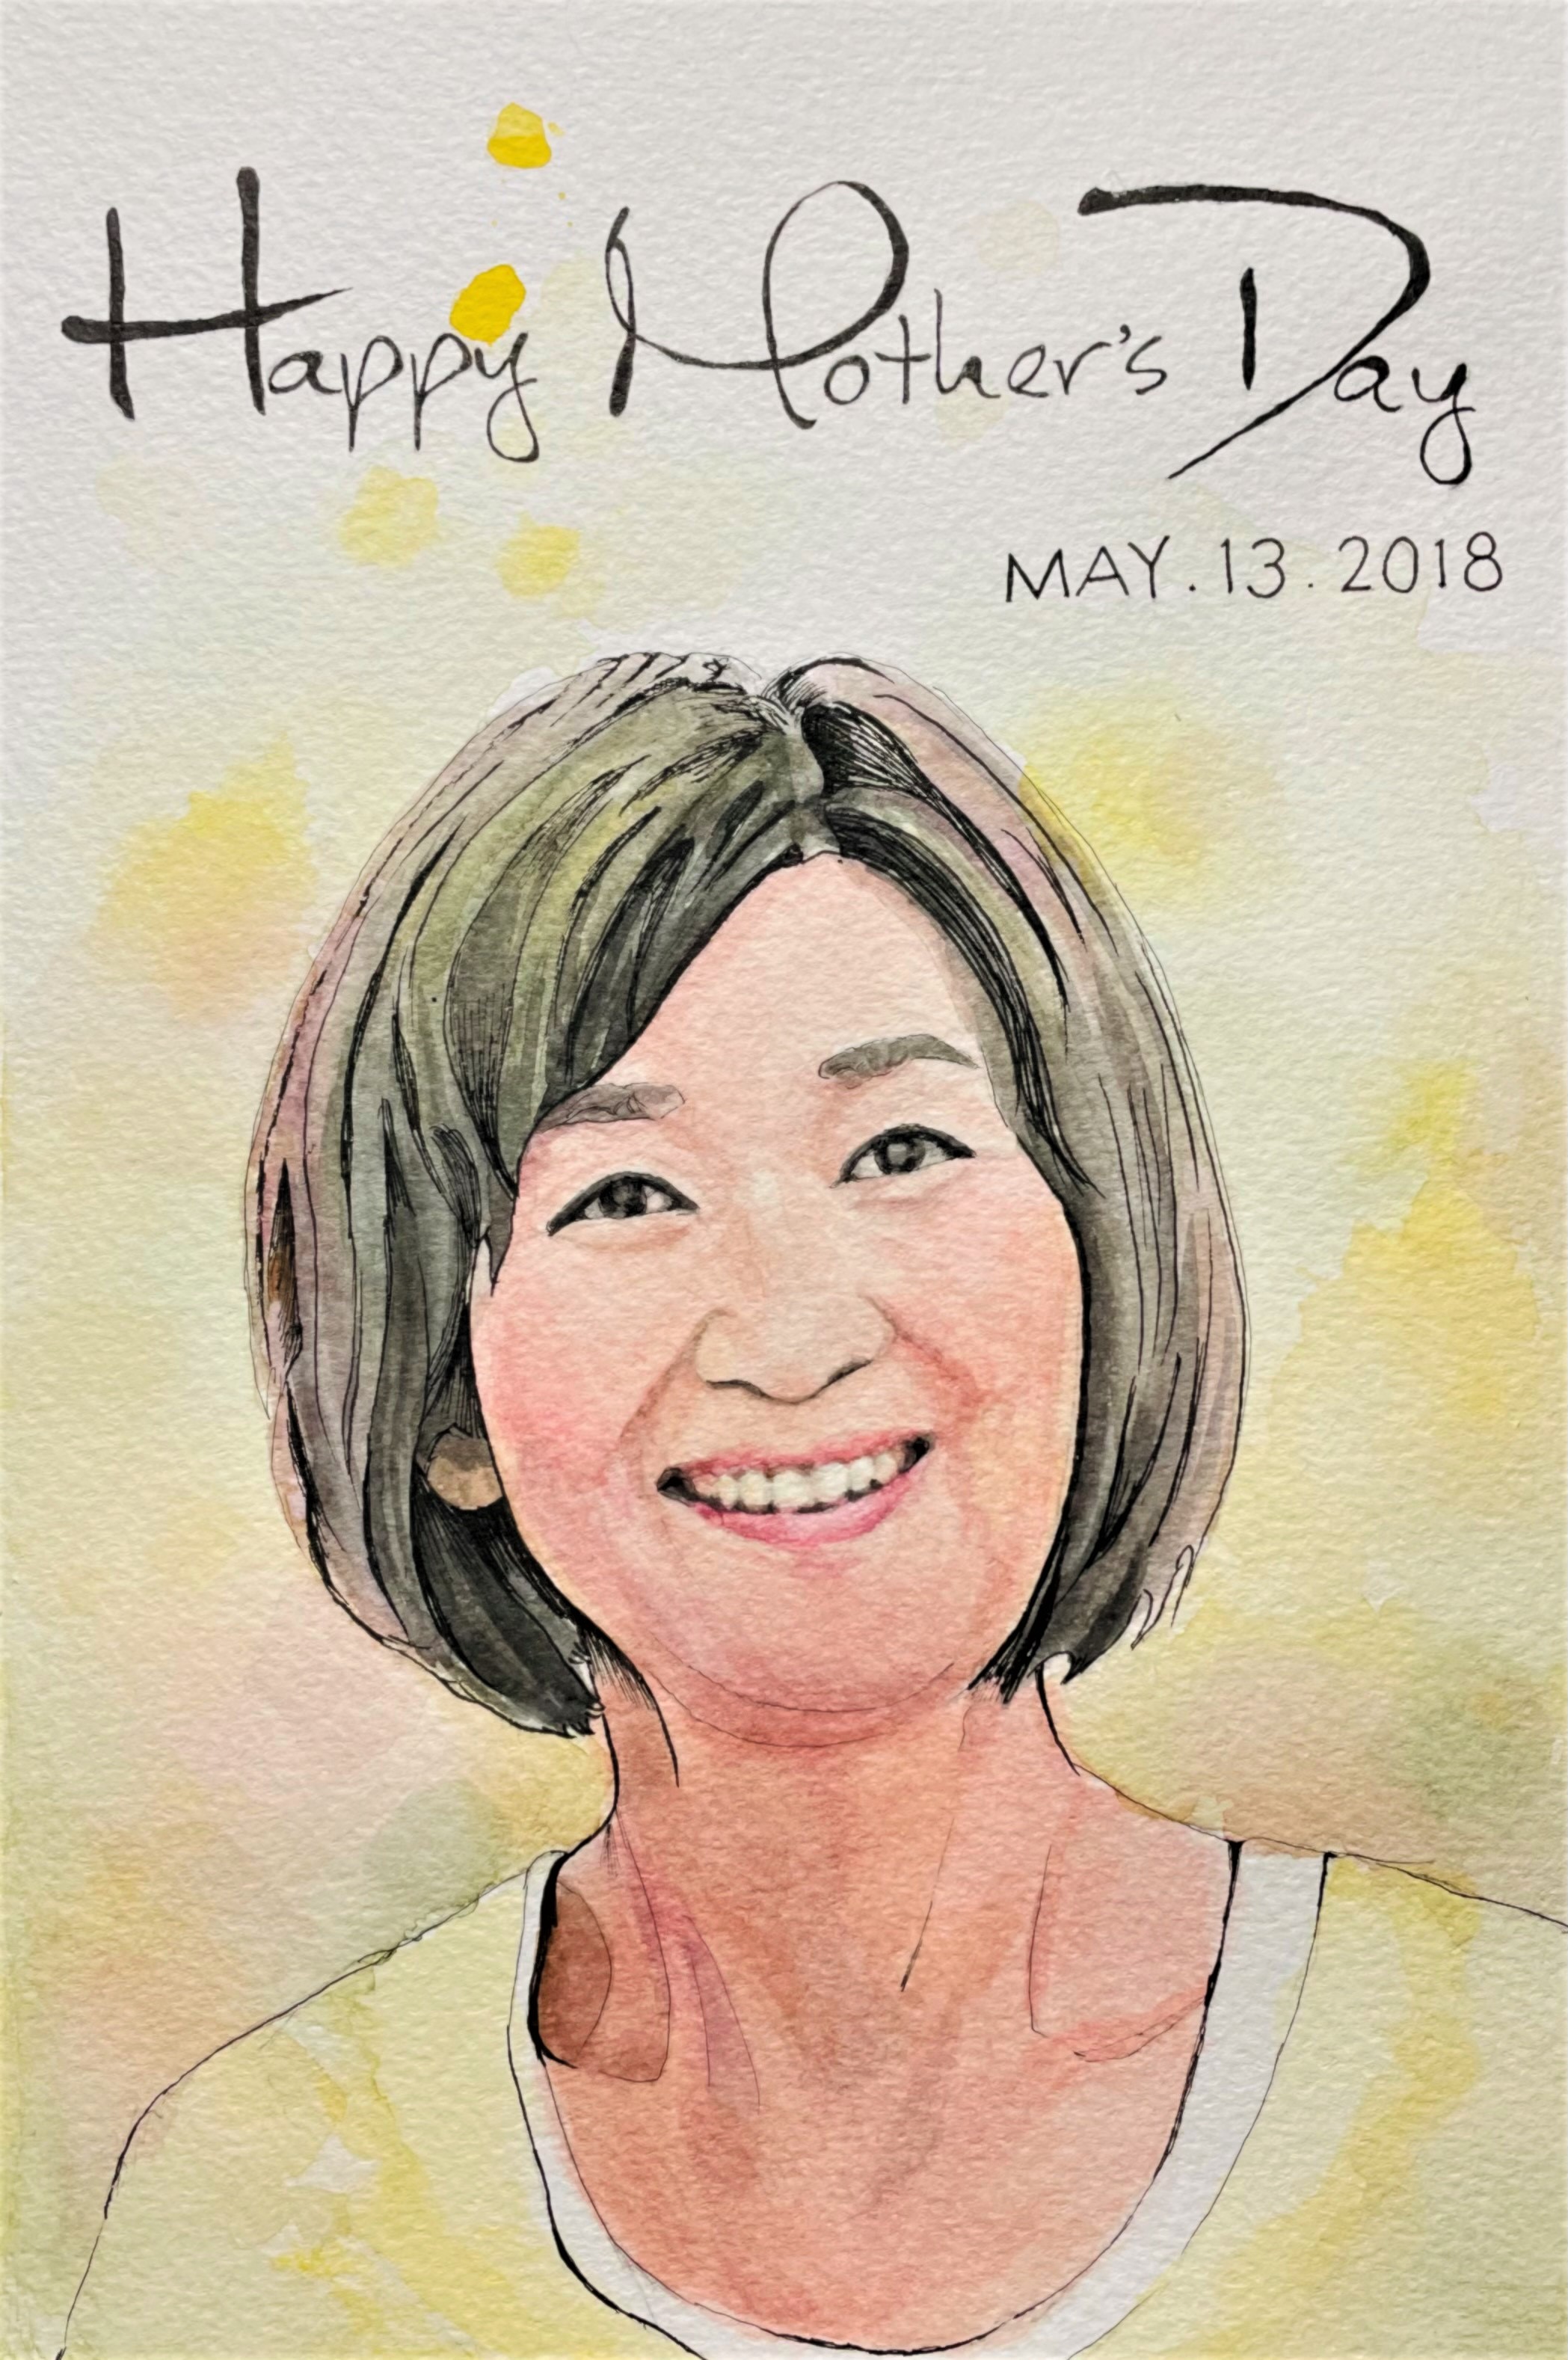 Happy Mother's Day
MAY.13.2018